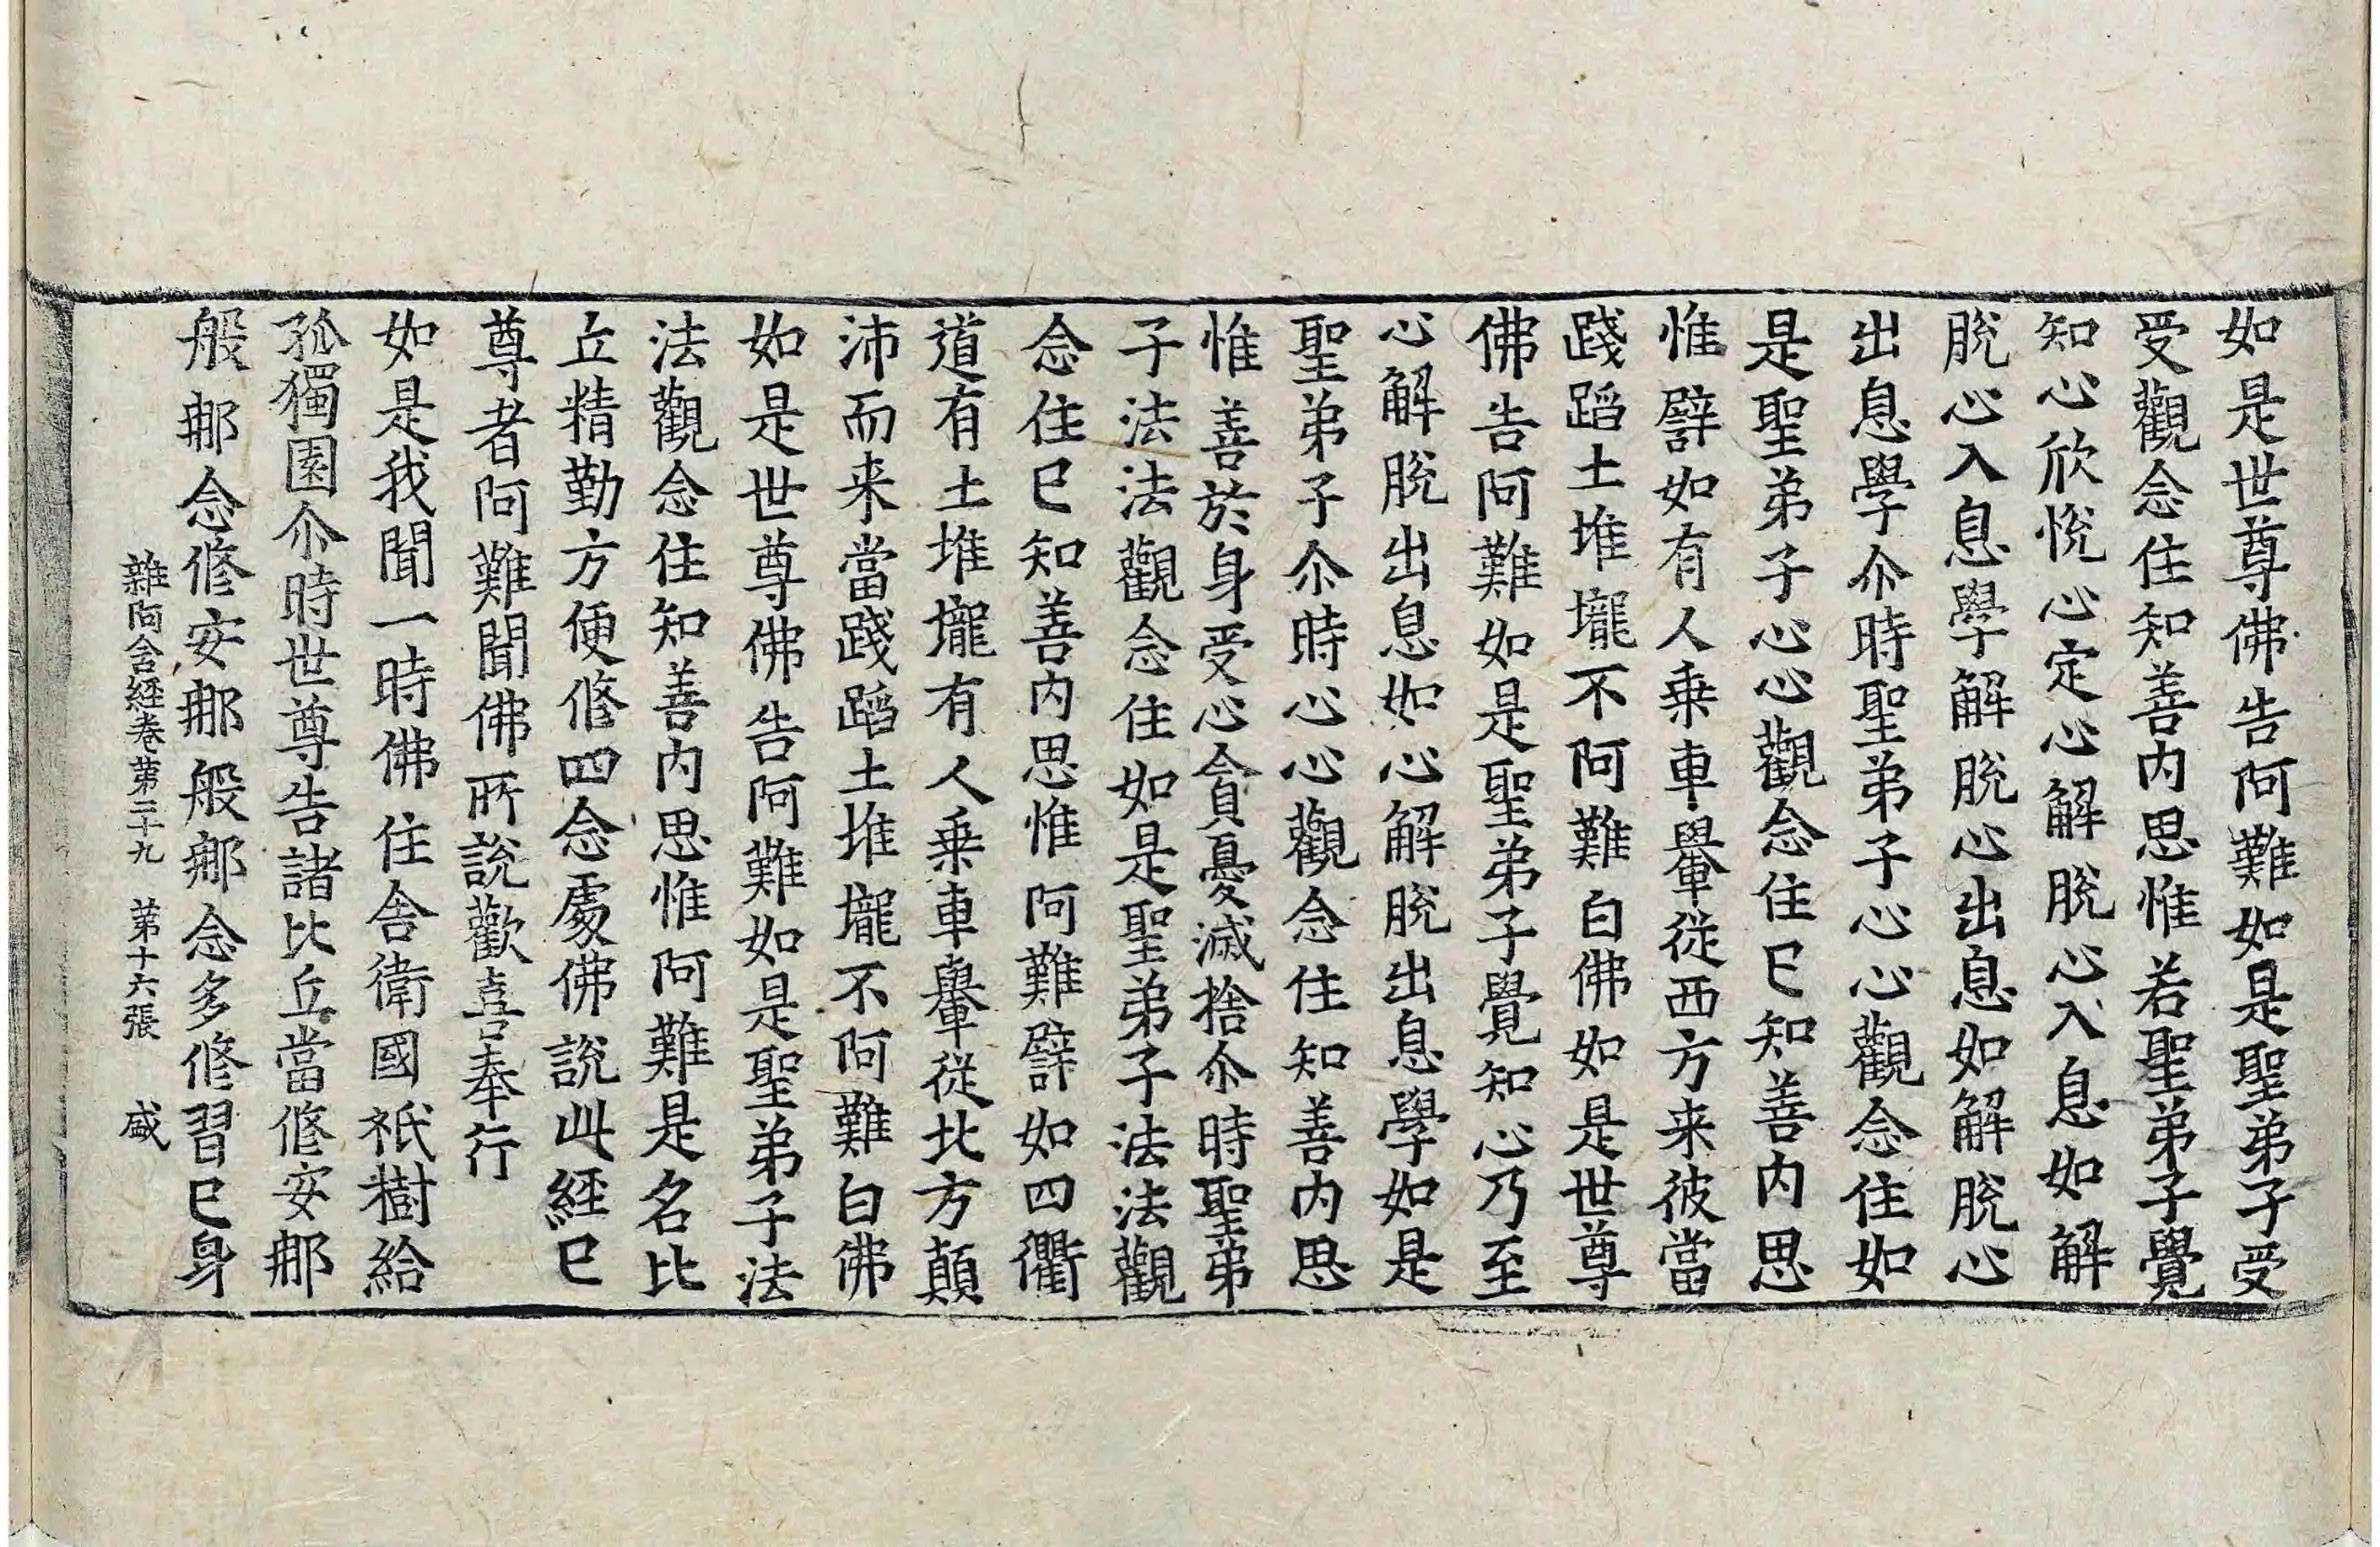 如是世尊佛告阿難如是聖弟子受
受觀念住知善內思惟若聖弟子覺
知心欣悅心定心解脫心入息如解
脫心入息學解脫心出息如解脫心
出息學尒時聖弟子心心觀念住如
是聖弟子心心觀念住已知善內思
惟譬如有人乗車轝從西方来彼當
踐蹈土堆壠不阿難白佛如是世尊
佛告阿難如是聖弟子覺知心乃至
心解脫出息如心解脫出息學如是
聖弟子尒時心心觀念住知善內思
惟善於身受心貪憂滅捨尒時聖弟
子法法觀念住如是聖弟子法法觀
念住已知善內思惟阿難譬如四衢
道有土堆壠有人乗車轝從北方顛
沛而来當踐蹈土堆壠不阿難白佛
如是世尊佛告阿難如是聖弟子法
法觀念住知善內思惟阿難是名比
丘精勤方便修四念處佛說此經已
尊者阿難聞佛所說歡喜奉行
如是我聞一時佛住舍衛國祇樹給
孤獨園尒時世尊告諸比丘當修安那
般那念修安那般那念多修習已身
雜阿含経卷第二十九　第十六張　盛